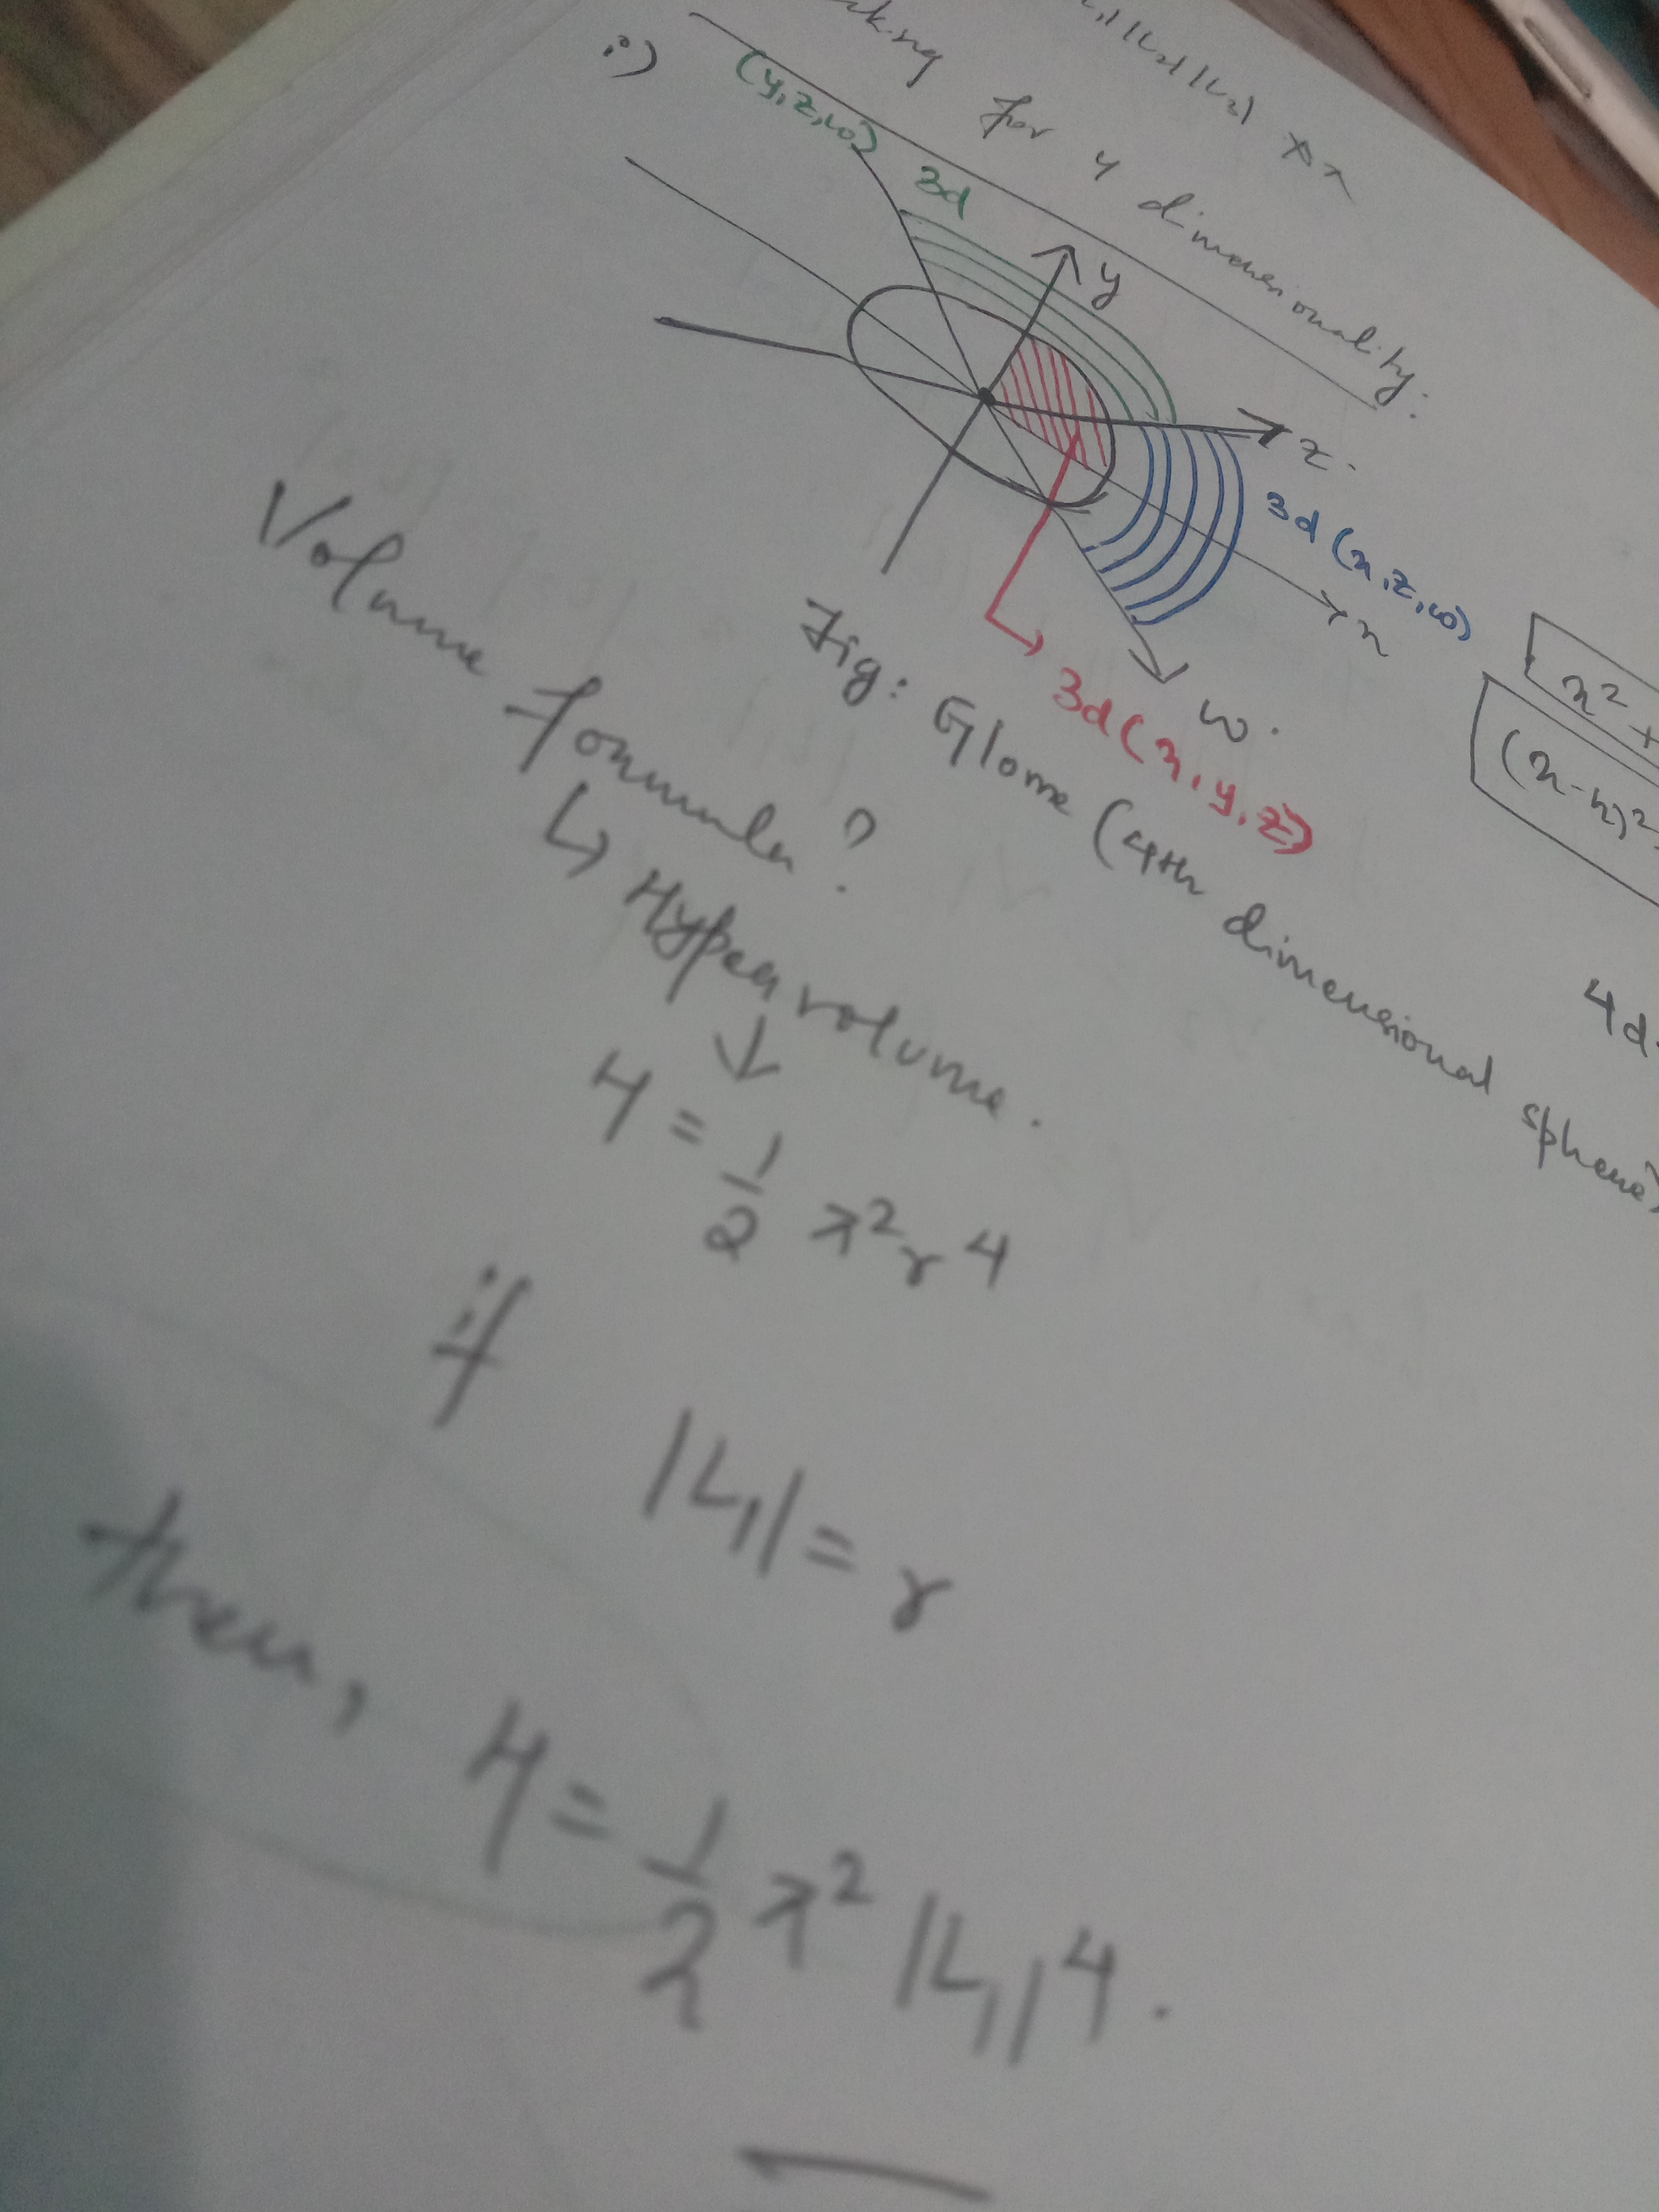 for 4 dimensionality:
i)
(y,z,w)
3d
y
z.
3d (x,z,w)
x
w.
3d (x,y,z)
Fig: Glome (4th dimensional sphere)
x² +
(x-h)²
4d
Volume formula?
↳ Hyper volume.
↓
H = 1/2 π² r⁴
if |L₁| = r
then, H = 1/2 π² |L₁|⁴.